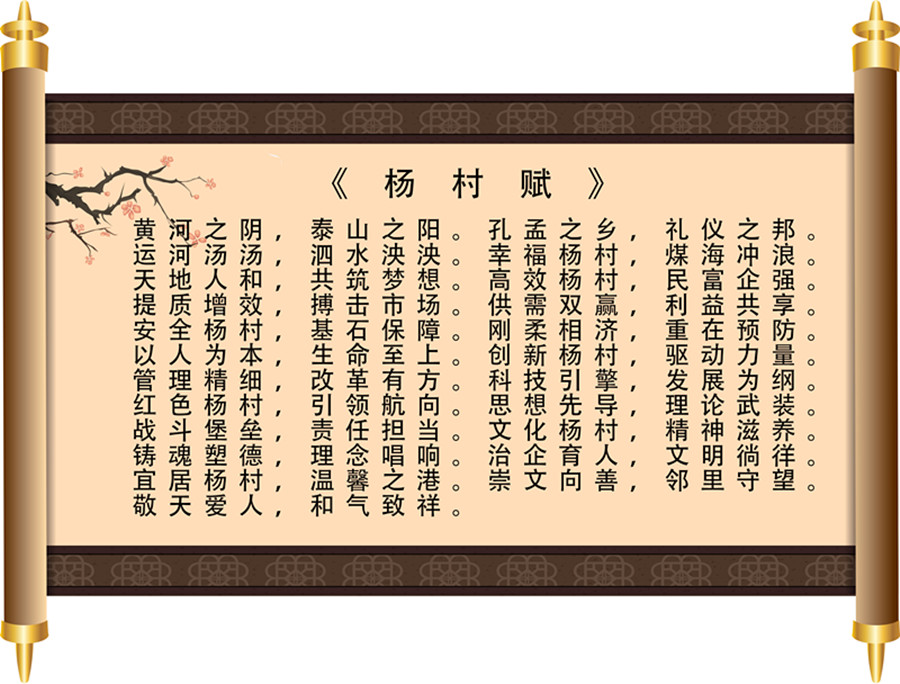 《杨村赋》
黄河之阴，泰山之阳。孔孟之乡，礼仪之邦。
运河汤汤，泗水泱泱。幸福杨村，煤海冲浪。
天地人和，共筑梦想。高效杨村，民富企强。
提质增效，搏击市场。供需双赢，利益共享。
安全杨村，基石保障。刚柔相济，重在预防。
以人为本，生命至上。创新杨村，驱动力量。
管理精细，改革有方。科技引擎，发展为纲。
红色杨村，引领航向。思想先导，理论武装。
战斗堡垒，责任担当。文化杨村，精神滋养。
铸魂塑德，理念唱响。治企育人，文明徜徉。
宜居杨村，温馨之港。崇文向善，邻里守望。
敬天爱人，和气致祥。